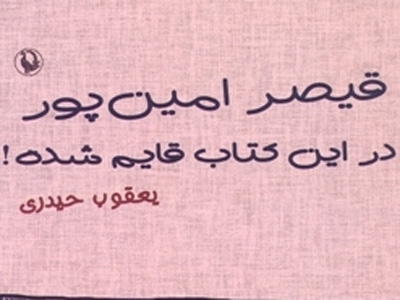 قیصر امین‌پور
در این کتاب قایم شده!
یعقوب حیدری